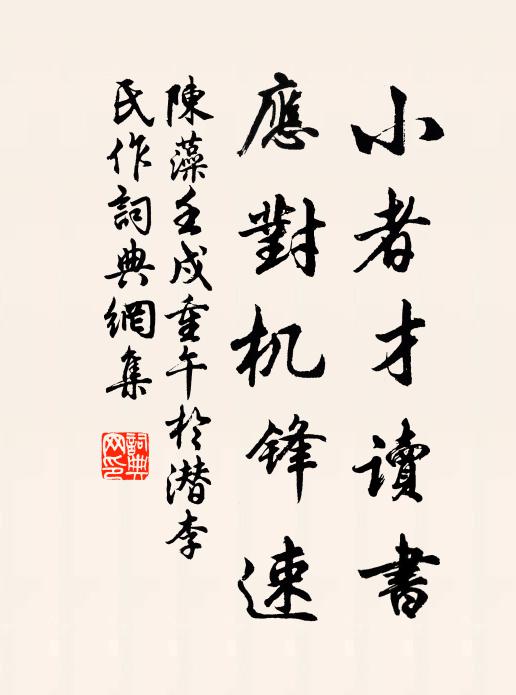 小者才讀書
應對机鋒速
陳藻壬戌重午於潛李
氏作詞典網集
詞典網印